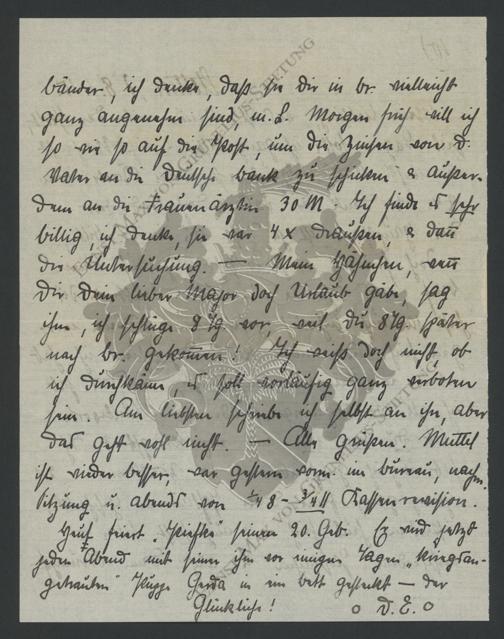 bänder, ich denke, daß sie dir in Br. vielleicht
ganz angenehm sind, m. L. Morgen früh will ich
so wie so auf die Post, um die Zinsen von D.
Vater an die Deutsche Bank zu schicken & außer-
dem an die Frauenärztin 30 M. Ich finde es sehr
billig, ich denke, sie war 4 x draußen, & dann
die Untersuchung. — Mein Hähnchen, wenn
Dir Dein lieber Major doch Urlaub gäbe, sag
ihm ich schlüge 8 Tg vor, weil Du 8 Tg später
nach Br. gekommen! Ich weiß doch nicht, ob
ich durchkann, es soll vorläufig ganz verboten
sein. Am liebsten schriebe ich selbst an ihn, aber
das geht wohl nicht. — Alle grüßen. Muttel
ist wieder besser, war gestern vorm. im Bureau, nachm.
Sitzung u. abends von ½8 – ¾11 Kassenrevision.
Heut feiert seinen 20. Geb. Er wird jetzt
jeden Abend mit seiner ihm vor einigen Tagen „kriegsan-
getrauten" Puppe Gerda in ein Bett gesteckt — der
Glückliche! o D. E. o
VON GRUNELIUS-STIFTUNG